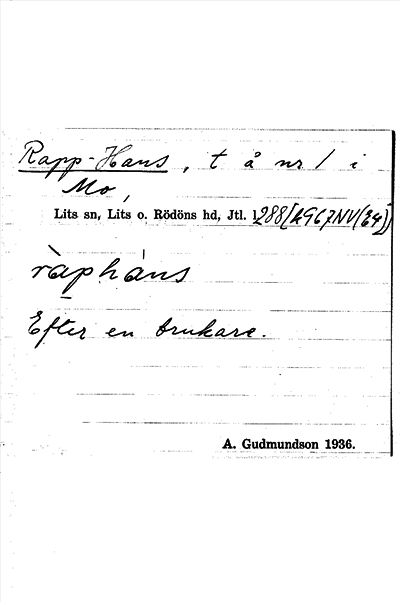 Rapp-Hans, t å nr 1 i
Mo,
Lits sn, Lits o. Rödöns hd, Jtl.
ràpháns
Efter en brukare.
A. Gudmundson 1936.